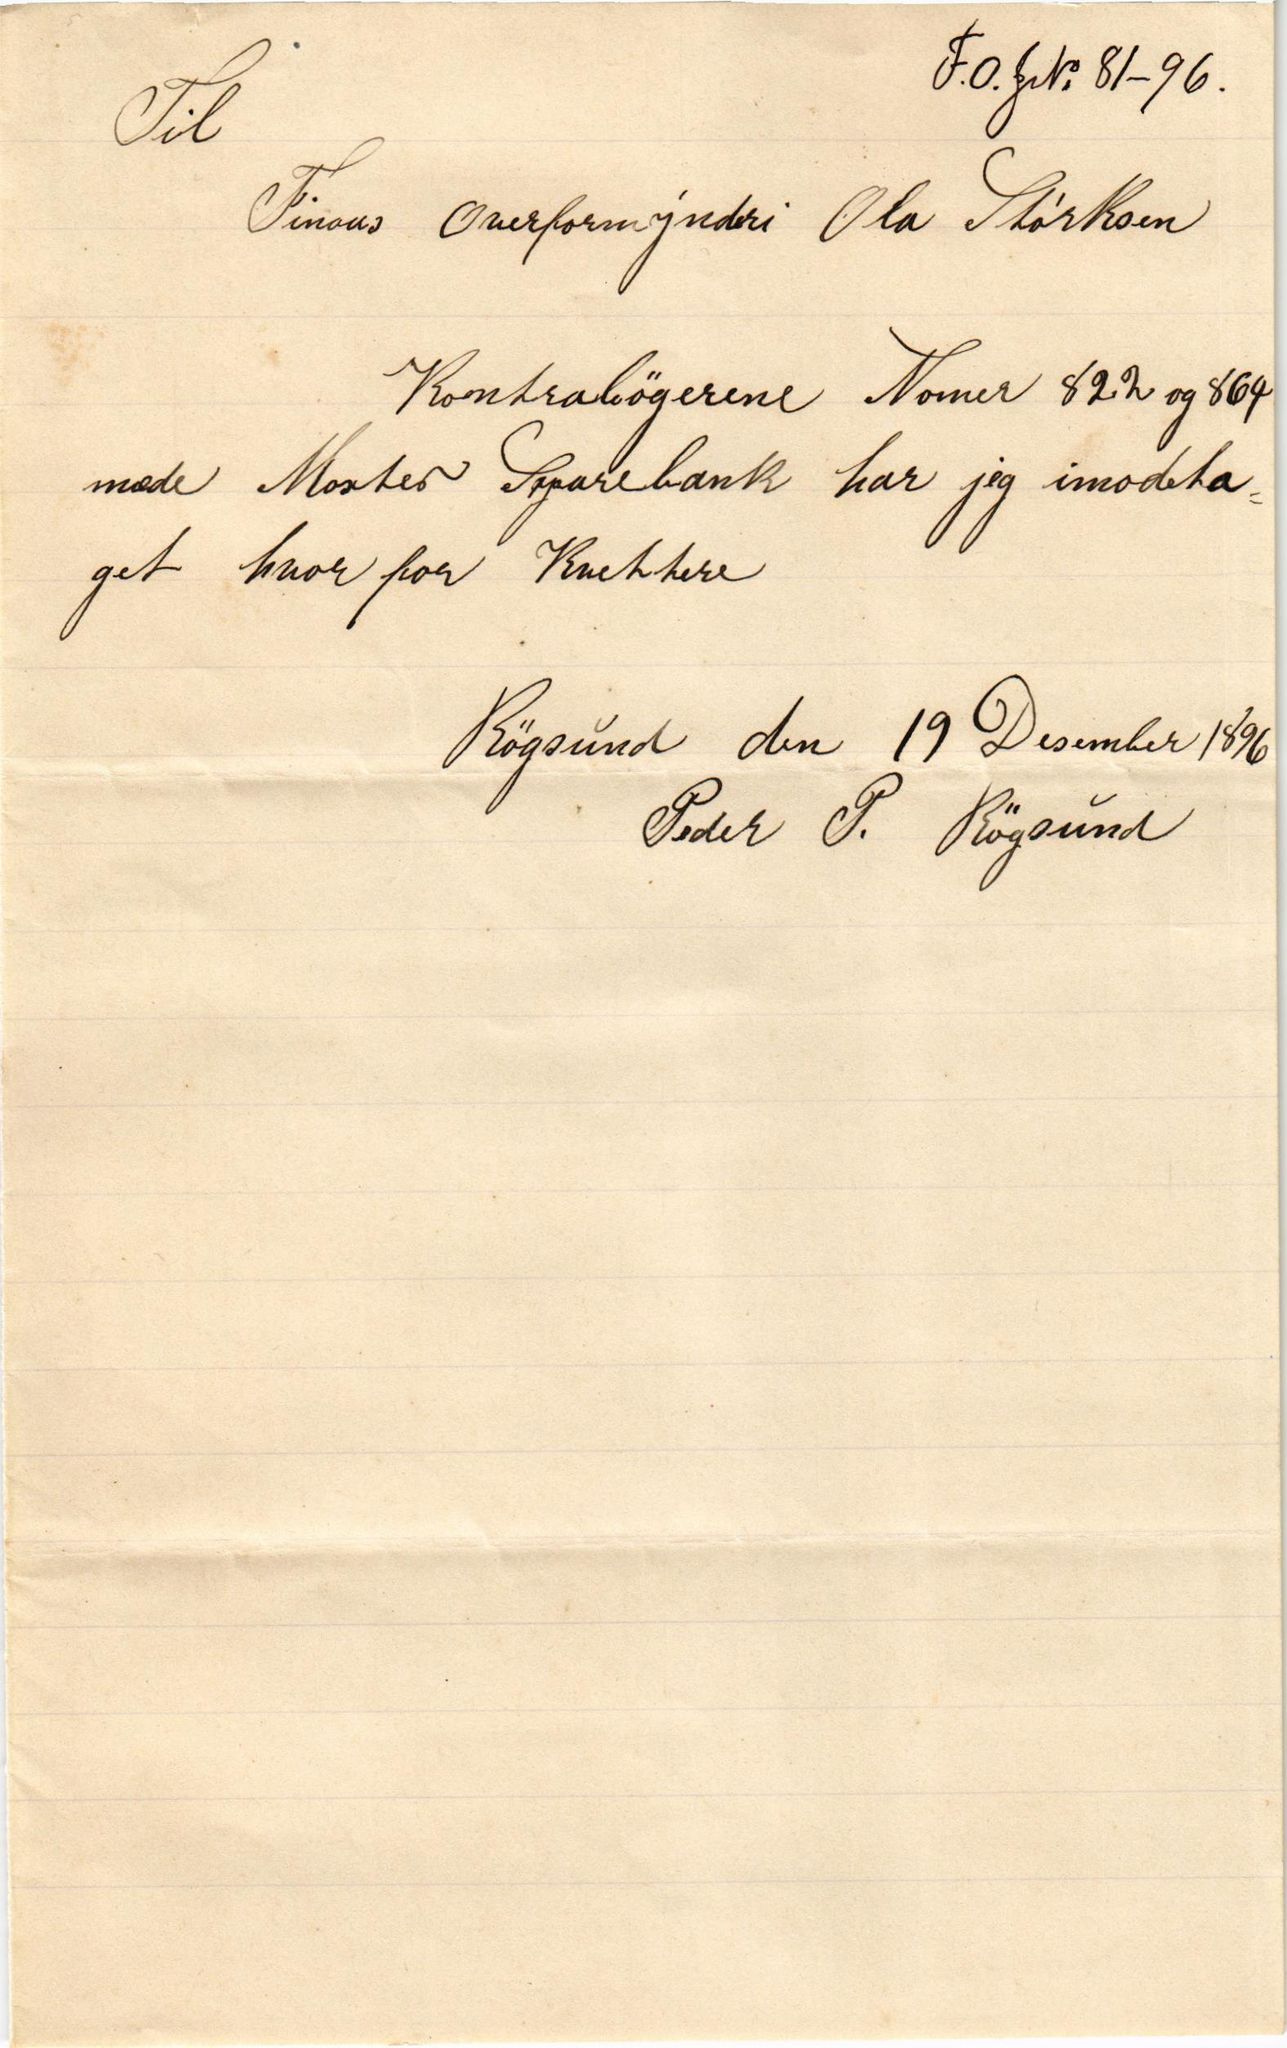 F.O. J.No. 81-96.
Til
Finaas Overformynderi Ola Störksen
Kontrabögerene Nomer 822 og 864
mæde Moster Sparebank har jeg imodeta=
get hvor for Kvettere
Rögsund den 19 Desember 1896
Peder P. Rögsund